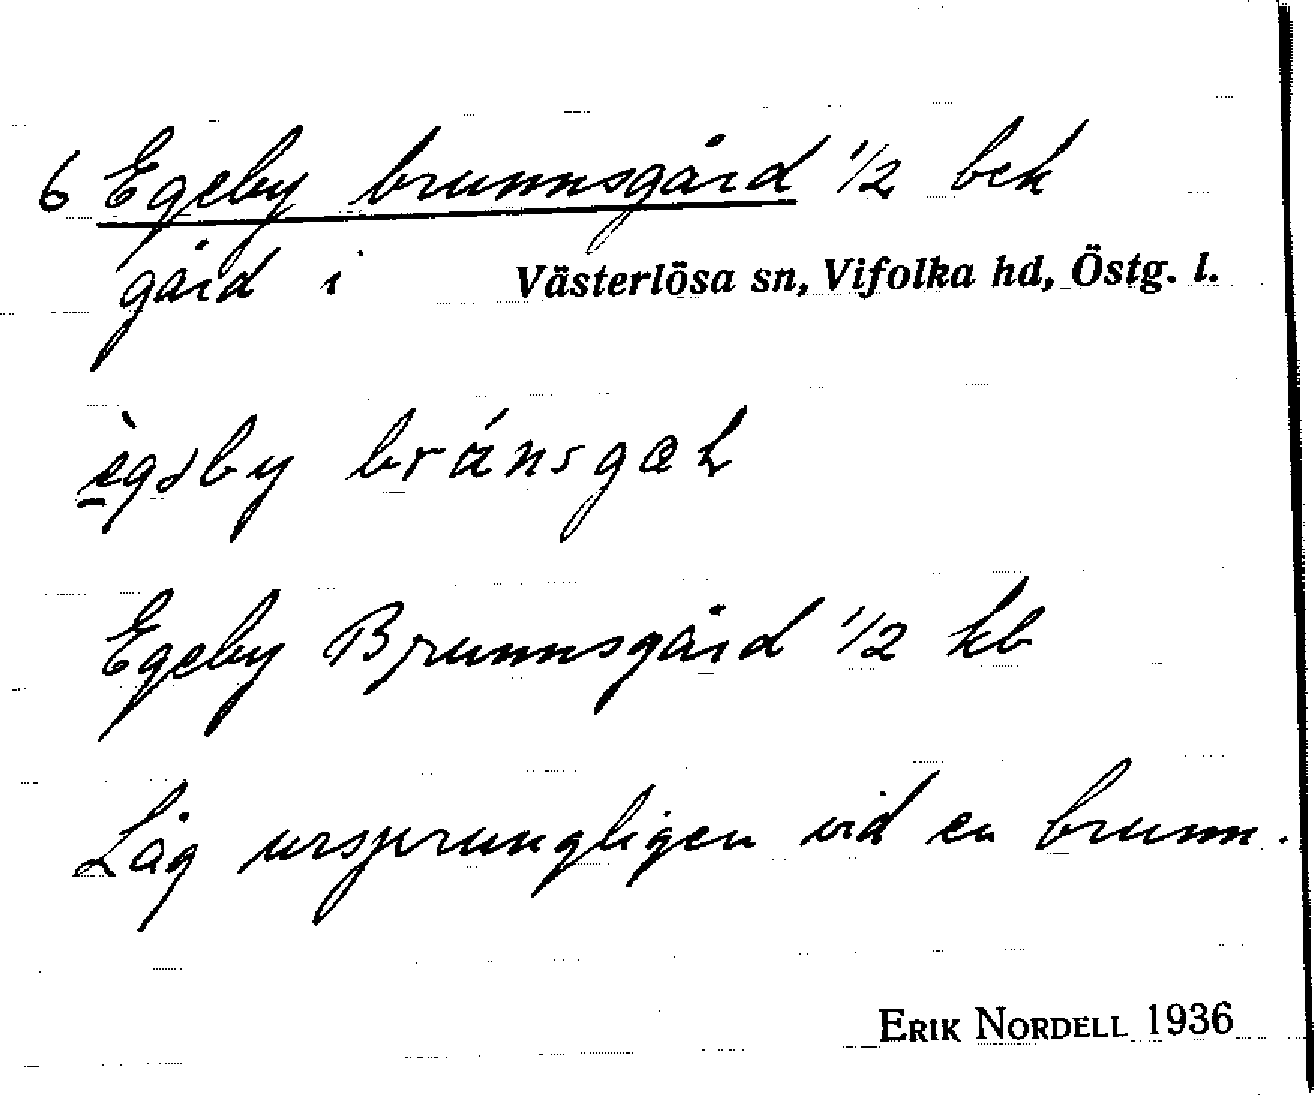 6 Egeby brunnsgård 1/2 bek
gård i Västerlösa sn, Vifolka hd, Östg. l.
Egeby Brunnsgård 1/2 kb
Låg ursprungligen vid en brunn.
ERIK NORDELL 1936